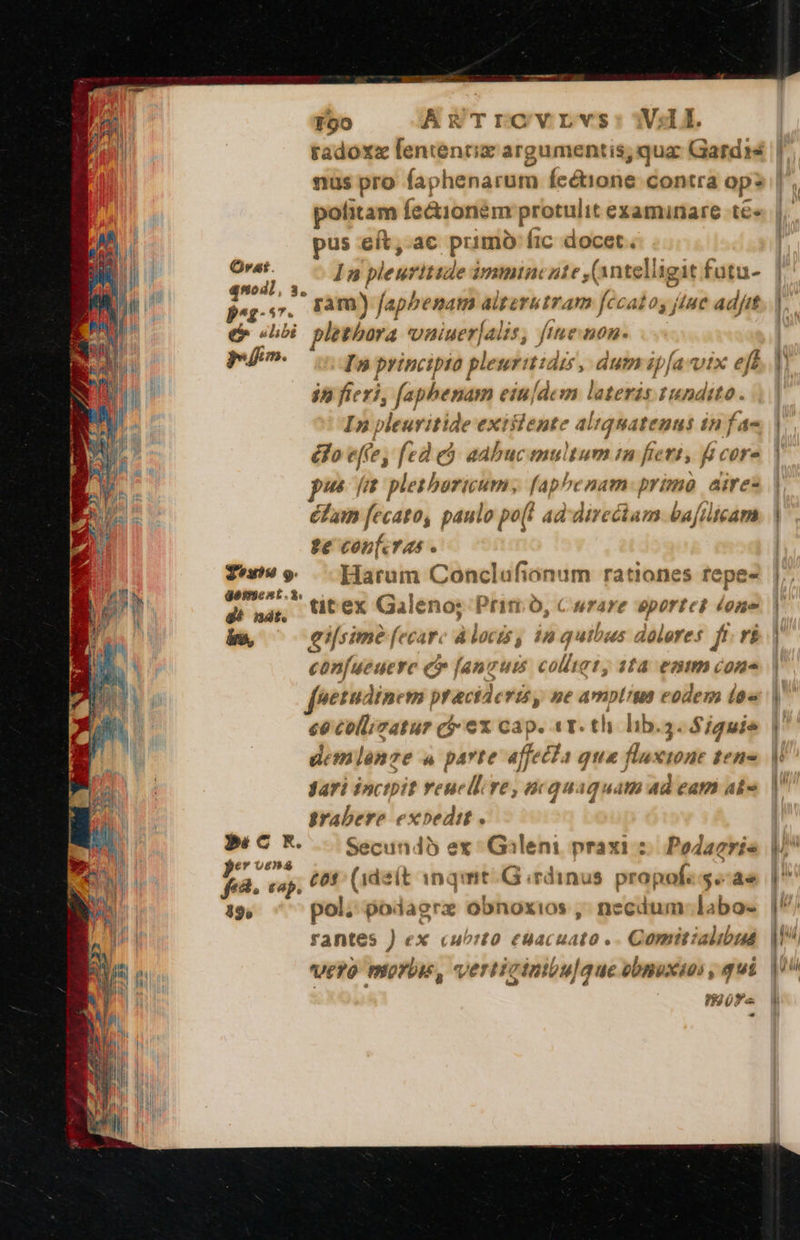 190 ANTICVRVS: VVLI.
radoxæ ſententiæ argumentis, quæ Gardi-
nus pro ſaphenarum ſectione contra op-
poſitam ſectionem protulit examinare te-
pus eſt, ac primò ſic docet.
Orat. In pleuritide imminente, (intelligit futu-
quodl, 3. ram) ſaphenam alterutram ſecato, ſiue adſit
pag. 57. & alibi plethora vniuerſalis, ſiue non.
paſſim. In principio pleuritidis, dum ipſa vix eſt
in fieri, ſaphenam eiuſdem lateris tundito.
In pleuritide exiſtente aliquatenus in fa-
cto eſſe, ſed & adhuc multum in fieri, ſi cor-
pus ſit plethoricum, ſaphenam primò dire-
ctam ſecato, paulo poſt ad directam baſilicam
te conferas.
Harum Concluſionum rationes repe-
tit ex Galeno; Primò, Curare oportet lon-
giſsimè ſecare à locis, in quibus dolores fi-ri
conſueuere & ſanguis colligi, ita enim con-
ſuetudinem præcideris, ne amplius eodem lo-
co colligatur & ex cap. 11. th. lib. 3. Siqui-
dem longe a parte affecta quæ fluxione ten-
tari incipit reuellere, nequaquam ad eam at-
trahere expedit.
Secundò ex Galeni praxi: Podagri-
cos (ideſt inquit Gardinus propoſ. 5. ae
39. pol, podagræ obnoxios, necdum labo-
rantes) ex cubito euacuato. Comitialibus
vero morbis, vertiginibuſque obnoxios, qui
mor-